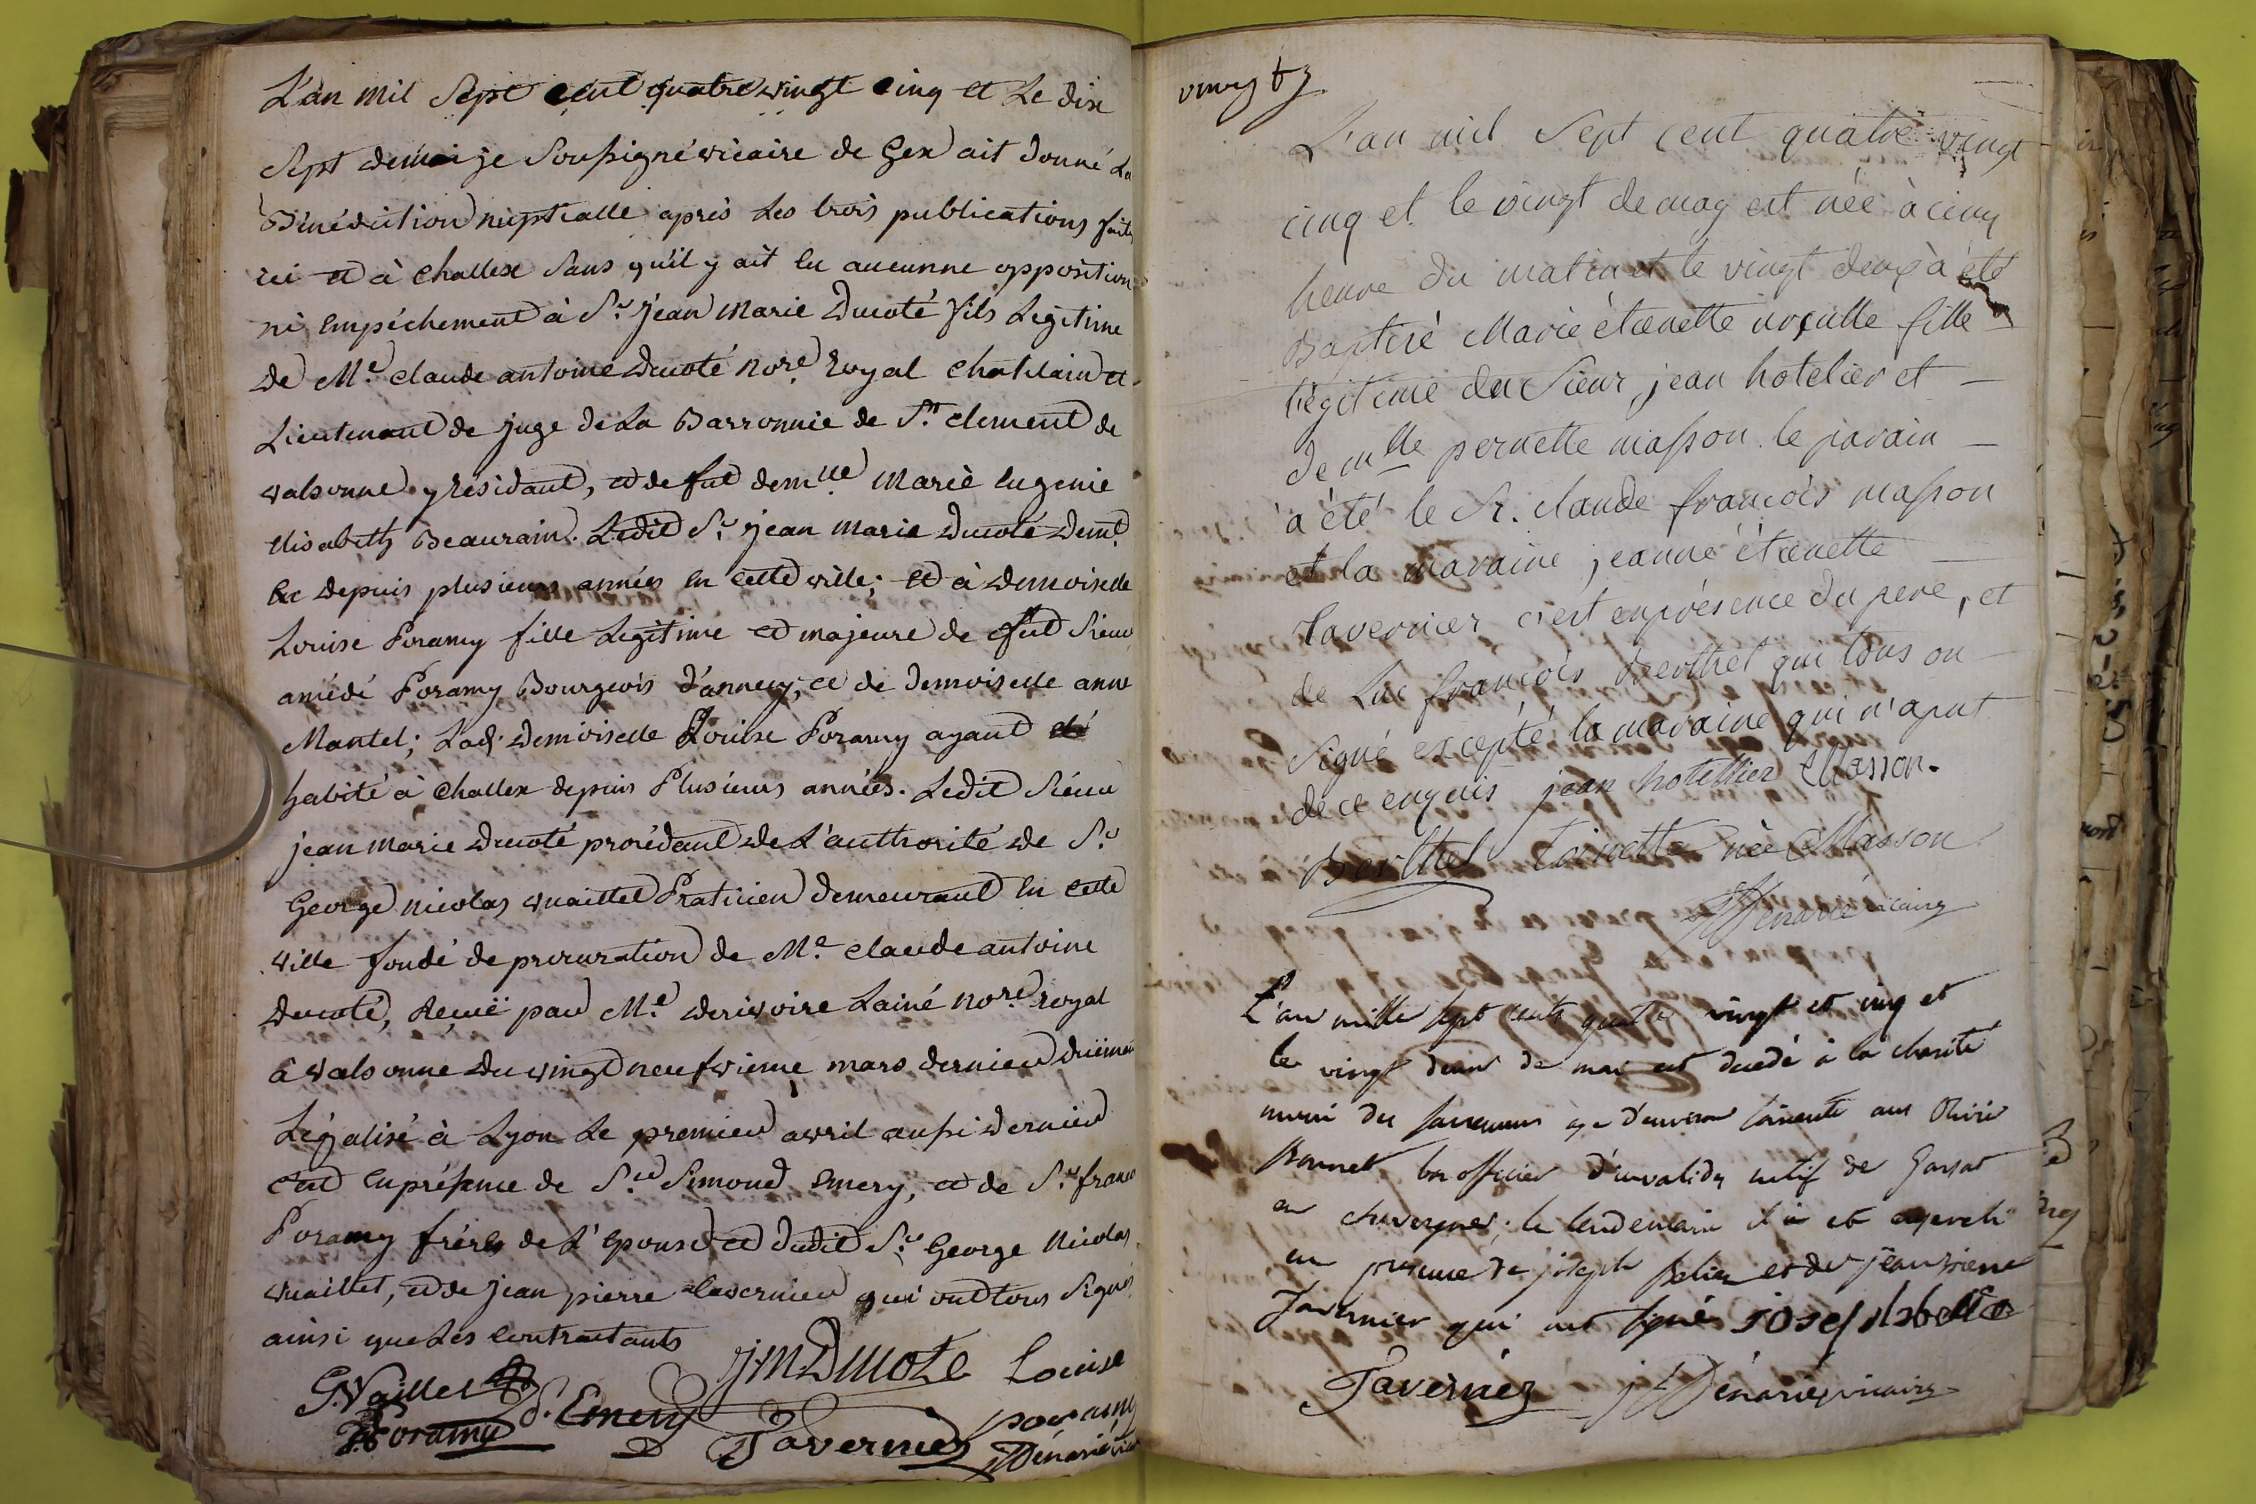 L'an mil Sept cent quatre vingt cinq et Le dix
Sept demai je Soussigné vicaire de Gex ait donné La
Bénédiction nuptialle après Les trois publications faites
ici et à Challex Sans qu'il y ait Eu aucunne opposition
ni Empéchement à Sr. jean Marie Ducoté fils Légitime
de Me. claude antoine Ducoté Nore. Royal Chatelain et
Lieutenant de juge de La Barronnie de St. clement de
valsonne y résidant, et de fut demlle Marie Eugenie
Elisabeth Beaurain. Ledit Sr. jean Marie Ducoté Demt.
Ec depuis plusieurs années En cette ville; et à Demoiselle
Louise Poramy fille Légitime et majeure de fut Sieur
amédé Poramy Bourgeois d'annecy, et de Demoiselle anne
Mantel; Lad. Demoiselle Louise Poramy ayant
habité à Challex depuis Plusieurs années. Ledit Sieur
jean marie Ducoté procédant de L'authorité de Sr
George nicolas vuaillet Praticien demeurant En cette
ville fondé de procuration de Me. claude antoine
Ducoté, Reçuë par Me. Derivoire Lainé Nore. royal
à valsonne Du vingt neufvieme mars dernier düëment
Légalisé à Lyon Le premier avril aussi dernier
Enprésence de Sr. Simond Emery, et de Sr. franc
Poramy fréres de L'Epouse et dudit Sr. George Nicolas
vuaillet, et de jean pierre tavernier qui ont tous Signés
ainsi que Les Contractants
G. Vaillet J.M. Ducoté Louise
Poramy S. Emery Tavernier poramy
Dénarié vicaire
L'an mil Sept cent quatre vingt
cinq et le vingt de may est née à cinq
heure du matin et le vingt deux à été
Baptisé Marie étienette ursulle fille
légitime du Sieur jean hotelier et
de mlle pernette masson. le parain
à été le Sr. claude françois masson
et la maraine jeanne étienette
tavernier c'est enprésence du pere, et
de Luc françois Berthet qui tous on
signé excepté la maraine qui n'a put
de ce enquis jean hotellier CMasson.
Berthet Toinette née Masson
Dénarié vicaire
L'an mille sept cents quatre vingt et cinq et
le vingt deux de mai est décédé à la charité
muni des sacremens agé d'environ soixante ans Olivier
Bonnet bas officier d'invalides natif de
en Auvergne; le lendemain il a été enseveli
en presence de joseph et de jean pierre
Tavernier qui ont signé
Tavernier Dénarié vicaire